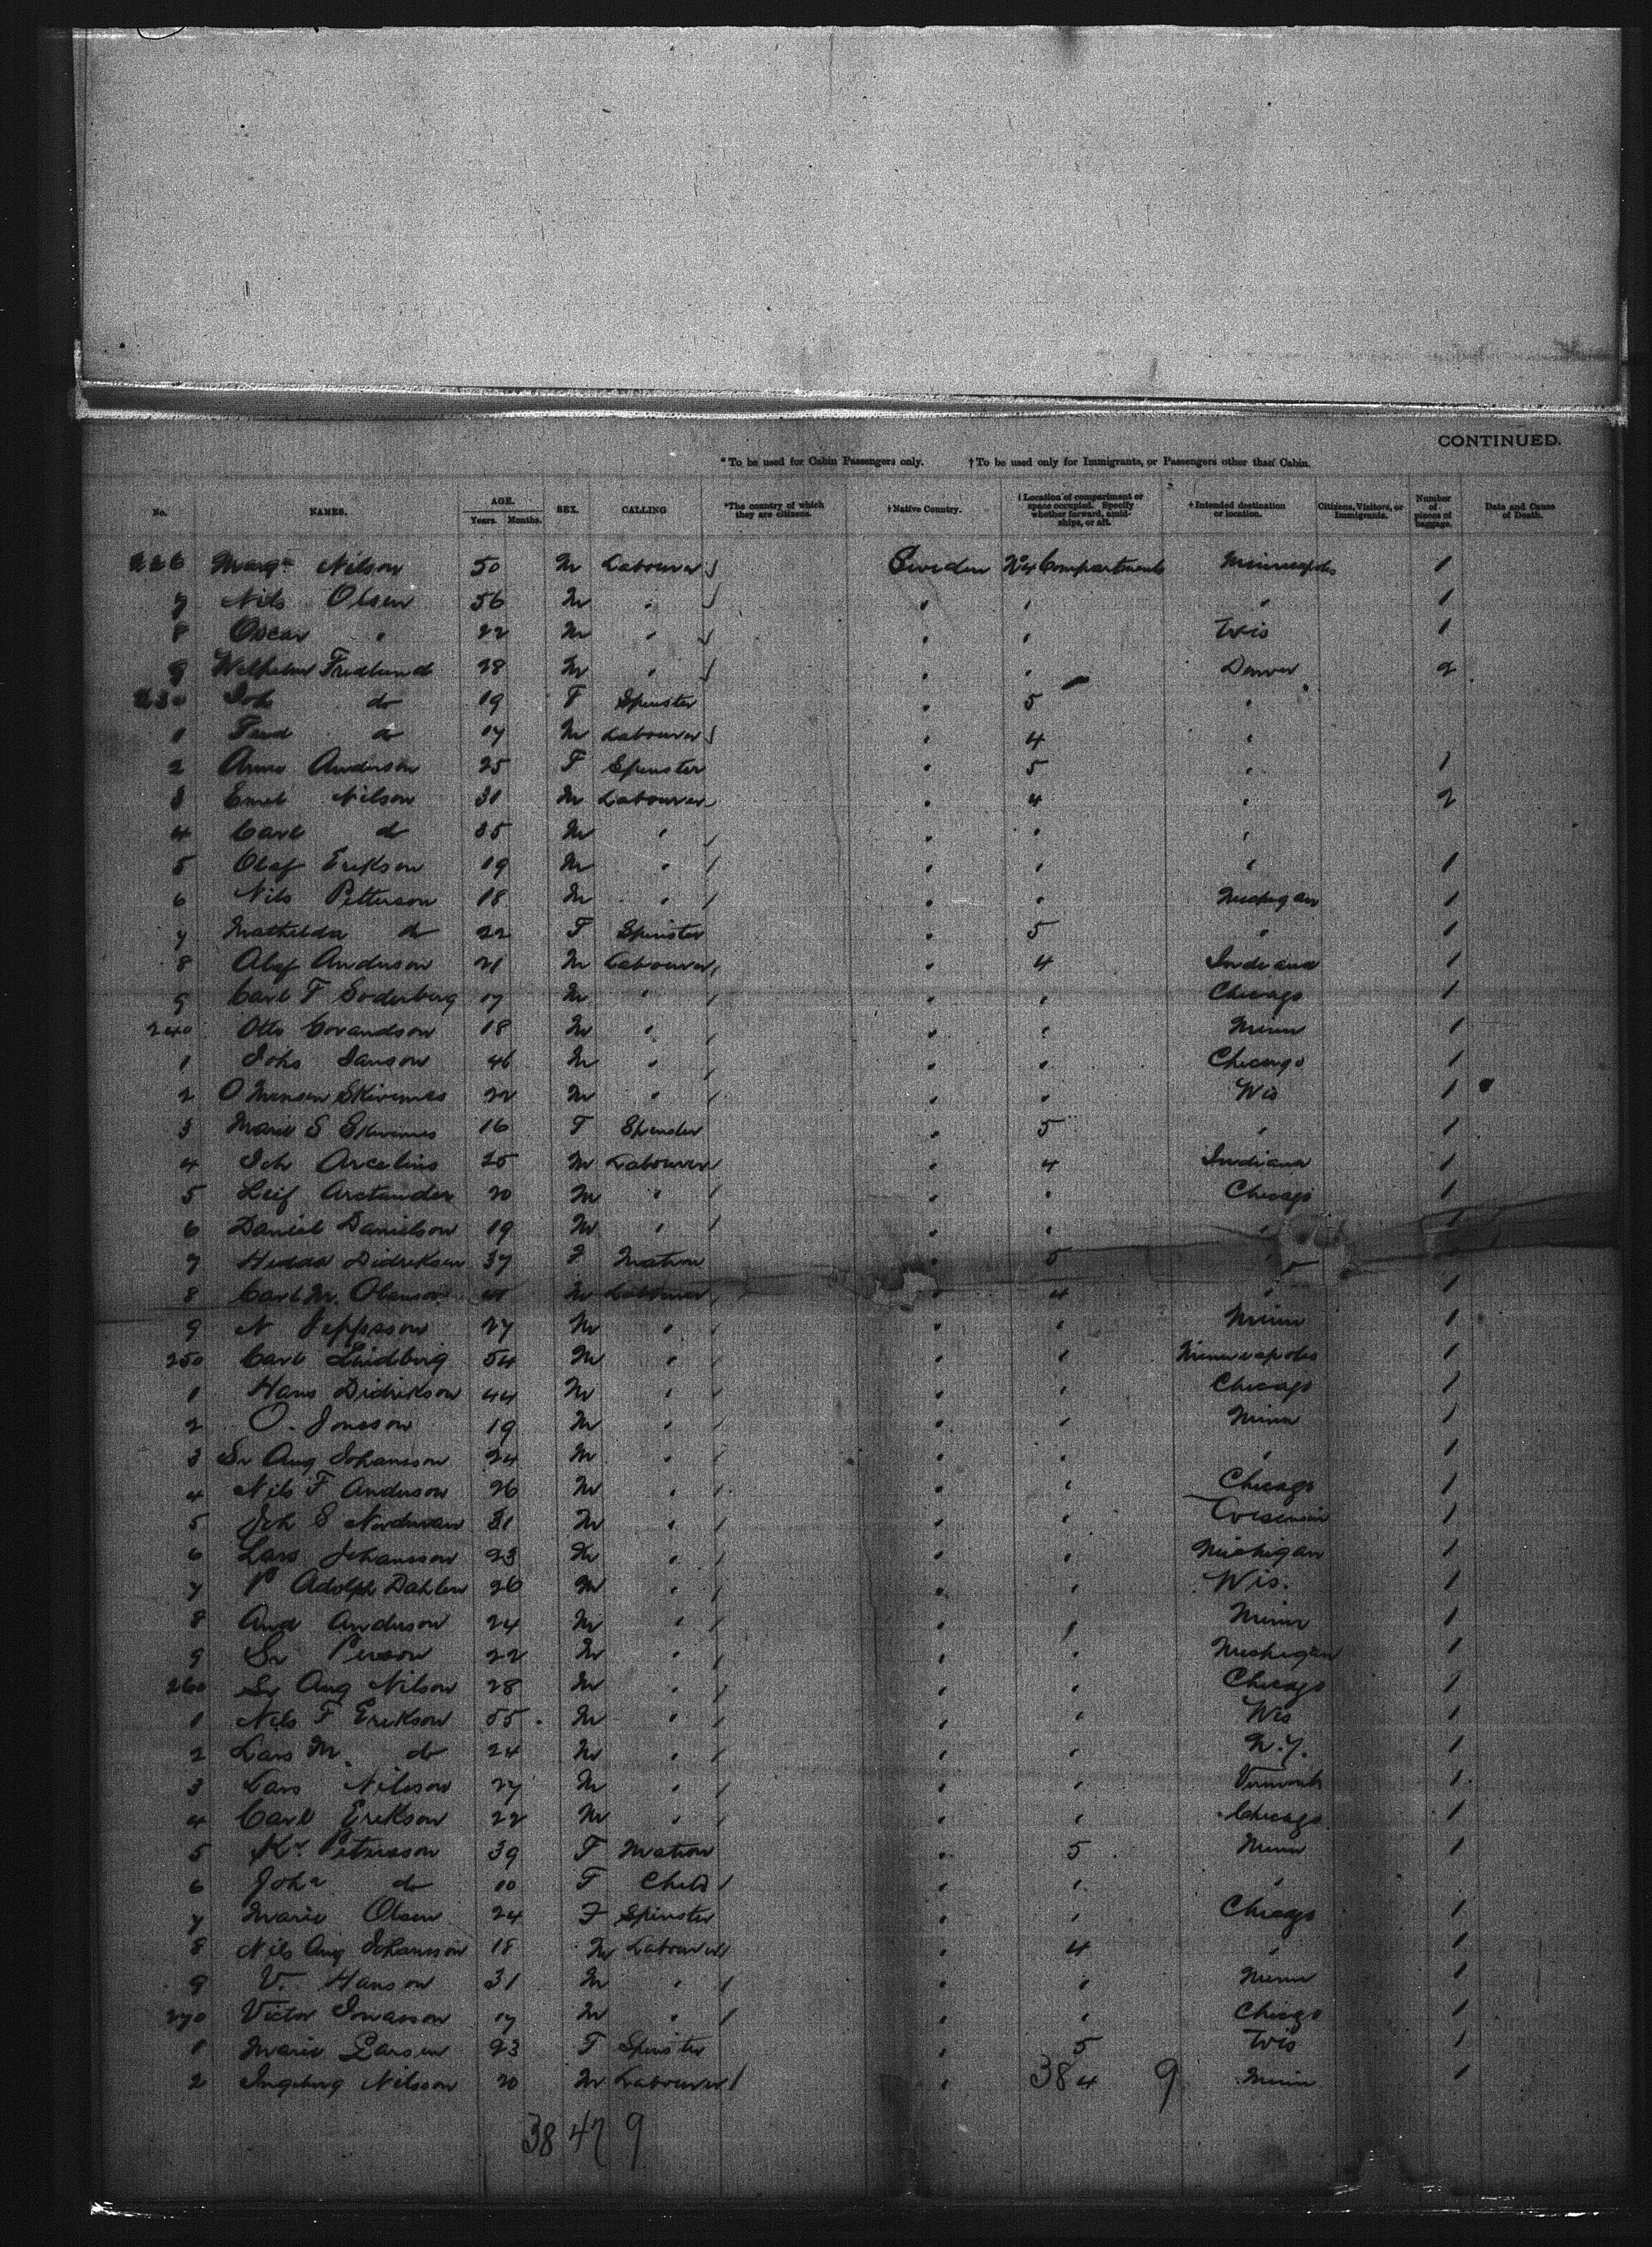 CONTINUED.
*To be used for Cabin Passengers only. †To be used only for Immigrants, or Passengers other than Cabin.
No. NAMES. AGE. Years. Months. SEX. CALLING *The country of which they are citizens. †Native Country. †Location of compartment or space occupied. Specify whether forward, amidships, or aft. †Intended destination or location. Citizens, Visitors, or Immigrants. Number of pieces of baggage. Date and Cause of Death.
226 Nilson 50 M Labourer Sweden No 4 Compartment Minneapolis 1
7 Nils Olsen 56 M " " " " 1
8 Oscar " 22 M " " " Wis 1
9 Wilhelm Fredlund 28 M " " " Denver 2
230 do 19 F Spinster " 5 "
1 do 17 M Labourer " 4 "
2 Anna Anderson 25 F Spinster " 5 " 1
3 Emil Nilson 31 M Labourer " 4 " 2
4 Carl do 35 M " " " "
5 Olaf Erikson 19 M " " " " 1
6 Nils Petterson 18 M " " " Michigan 1
7 Mathilda do 22 F Spinster " 5 " 1
8 Olaf Anderson 21 M Labourer " 4 Indiana 1
9 Carl F Soderberg 17 M " " " Chicago 1
240 Otto 18 M " " " Minn 1
1 Johs Janson 46 M " " " Chicago 1
2 O 22 M " " " Wis 1
3 Marie S 16 F Spinster " 5 " 1
4 Joh 25 M Labourer " 4 Indiana 1
5 Leif 20 M " " " Chicago 1
6 Daniel Danielson 19 M " " " " 1
7 Hedda Didriksen 37 F Matron " 5 "
8 Carl M. M Labourer " 4 " 1
9 N Jeppsson 27 M " " " Minn 1
250 Carl Lindberg 54 M " " " Minneapolis 1
1 Hans Didrikson 44 M " " " Chicago 1
2 O. Jonsson 19 M " " " Minn 1
3 Sv Aug Johansson 24 M " " " " 1
4 Nils F Anderson 26 M " " " Chicago 1
5 Joh S Nordman 31 M " " " Wisconsin 1
6 Lars Johansson 23 M " " " Michigan 1
7 P Adolph Dahlen 26 M " " " Wis. 1
8 And Anderson 24 M " " " Minn 1
9 Sv Person 22 M " " " Michigan 1
260 Sv Aug Nilson 28 M " " " Chicago 1
1 Nils F Erikson 55 M " " " Wis 1
2 Lars M. do 24 M " " " N.Y. 1
3 Lars Nilsson 27 M " " " Vermont 1
4 Carl Erikson 22 M " " " Chicago 1
5 Kr Petersson 39 F Matron " 5 Minn 1
6 Joha do 10 F Child " " "
7 Marie Olsen 24 F Spinster " " Chicago 1
8 Nils Aug Johansson 18 M Labourer " 4 " 1
9 V. Hanson 31 M " " " Minn 1
270 Victor Jonasson 17 M " " " Chicago 1
1 Marie Larsen 23 F Spinster " 5 Wis 1
2 Ingeborg Nilsson 20 M Labourer " 4 Minn 1
38 9
38 47 9